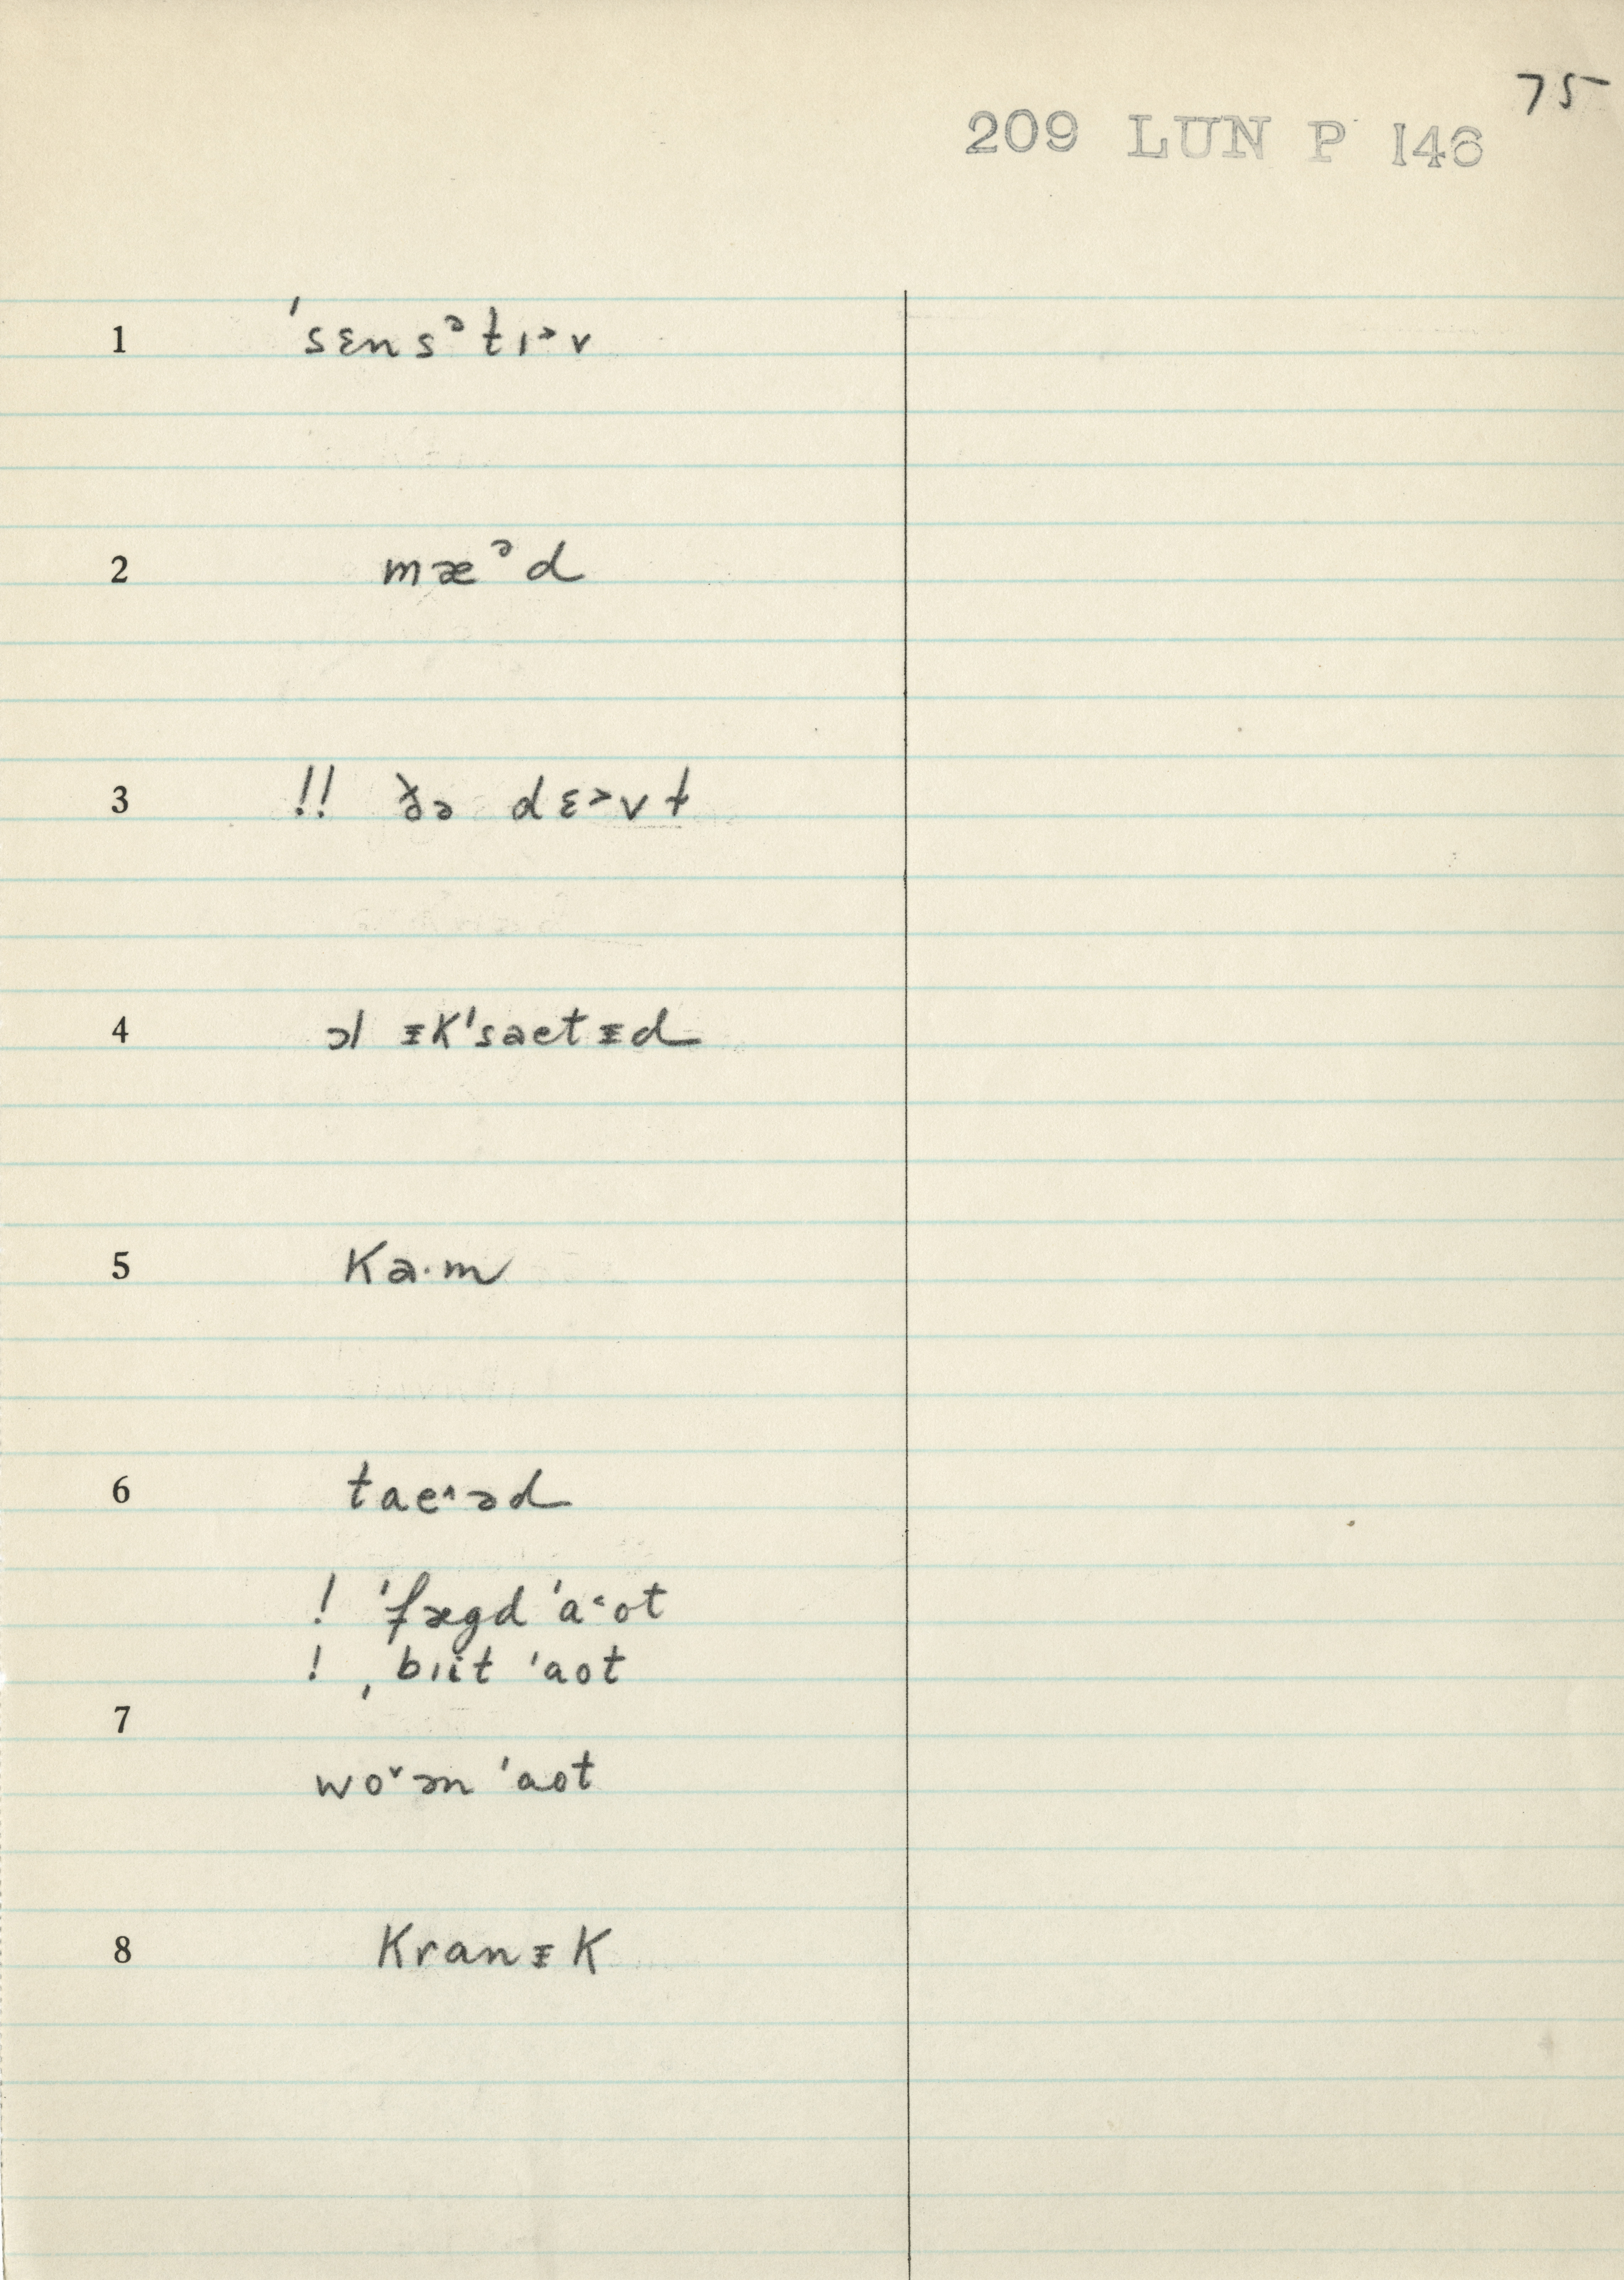 75
209 LUN P 146
1 ˈsɛnsᵊtɪ˃v
2 mæᵊd
3 !! ðə dɛ˃vt
4 ɔl ᵻkˈsaetᵻd
5 ka·m
6 tae˄əd
! ˈfægd ˈa˂ot
! ˌbiit ˈaot
7
wo˅ən ˈaot
8 kranᵻk